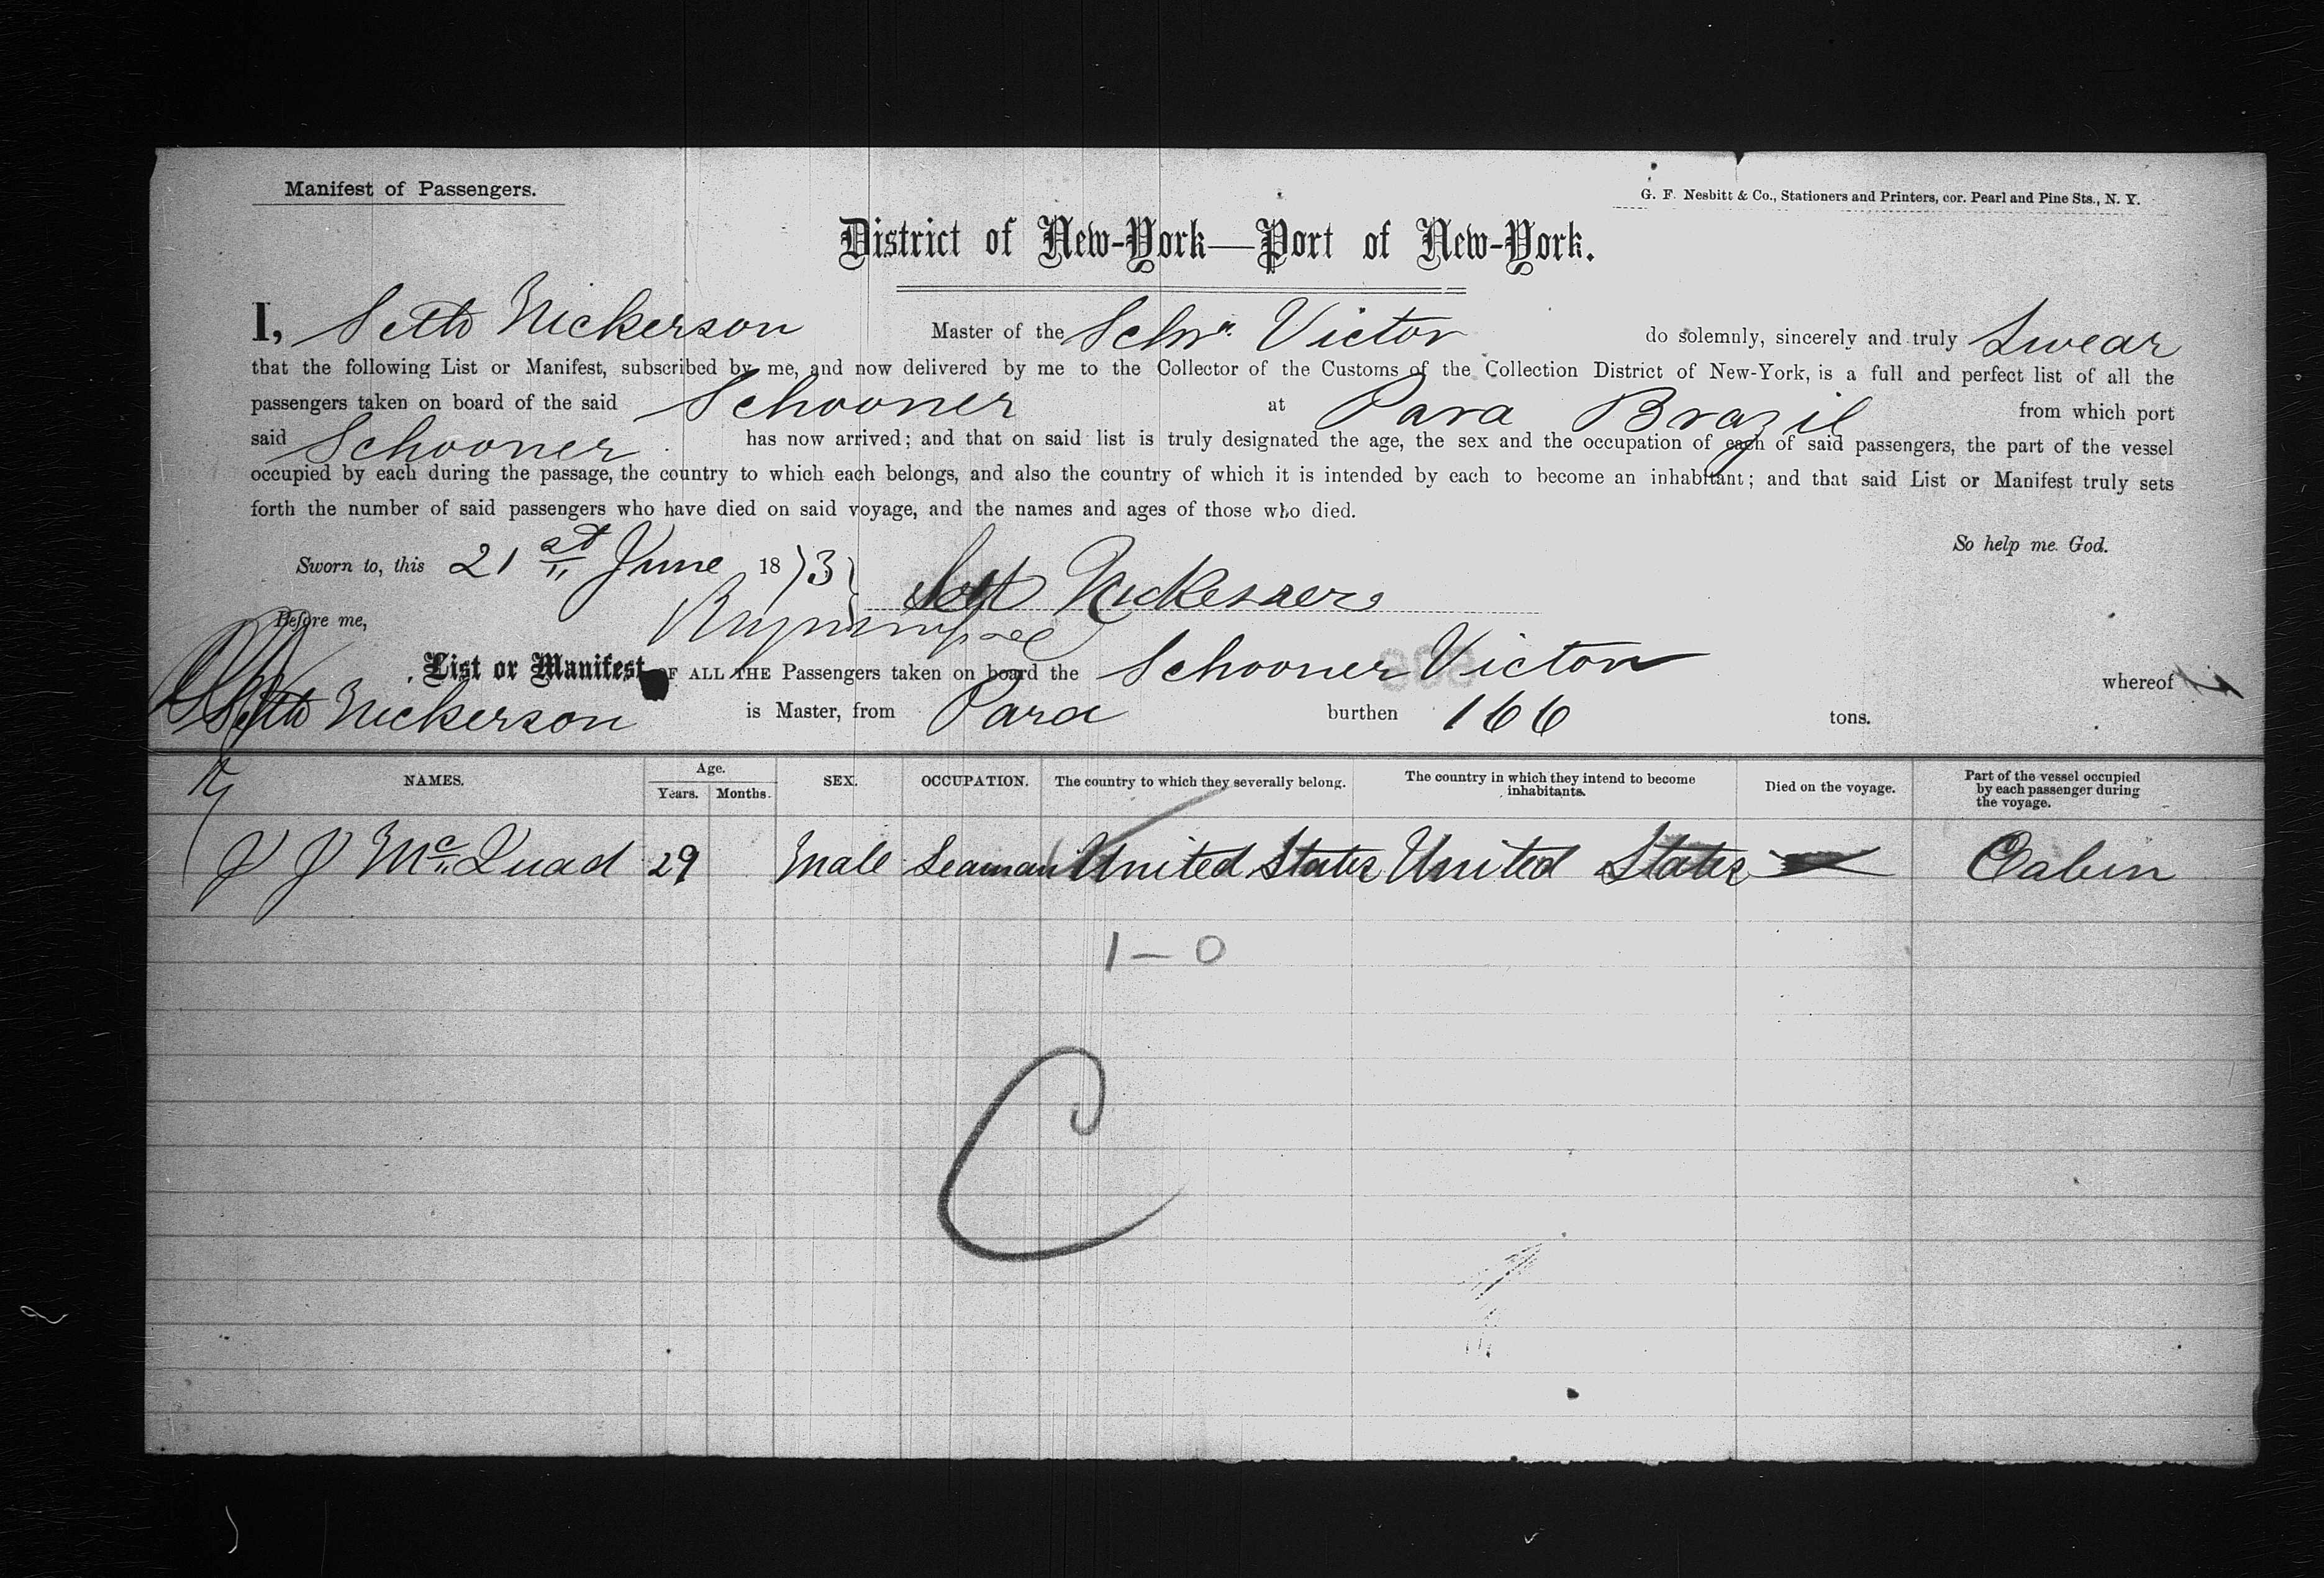 Manifest of Passengers.
G. F. Nesbitt & Co., Stationers and Printers, cor. Pearl and Pine Sts., N. Y.
District of New-York—Port of New-York.
I, Seth Nickerson Master of the Schr. Victor do solemnly, sincerely and truly Swear
that the following List or Manifest, subscribed by me, and now delivered by me to the Collector of the Customs of the Collection District of New-York, is a full and perfect list of all the
passengers taken on board of the said Schooner at Para Brazil from which port
said Schooner has now arrived; and that on said list is truly designated the age, the sex and the occupation of each of said passengers, the part of the vessel
occupied by each during the passage, the country to which each belongs, and also the country of which it is intended by each to become an inhabitant; and that said List or Manifest truly sets
forth the number of said passengers who have died on said voyage, and the names and ages of those who died.
So help me God.
Sworn to, this 21st June 1873 Seth Nickerson
Before me,
List or Manifest OF ALL THE Passengers taken on board the Schooner Victor whereof
Seth Nickerson is Master, from Para burthen 166 tons.
NAMES. Age. Years. Months. SEX. OCCUPATION. The country to which they severally belong. The country in which they intend to become inhabitants. Died on the voyage. Part of the vessel occupied by each passenger during the voyage.
J J McQuad 29 Male Seaman United States United States Cabin
1 — 0
C